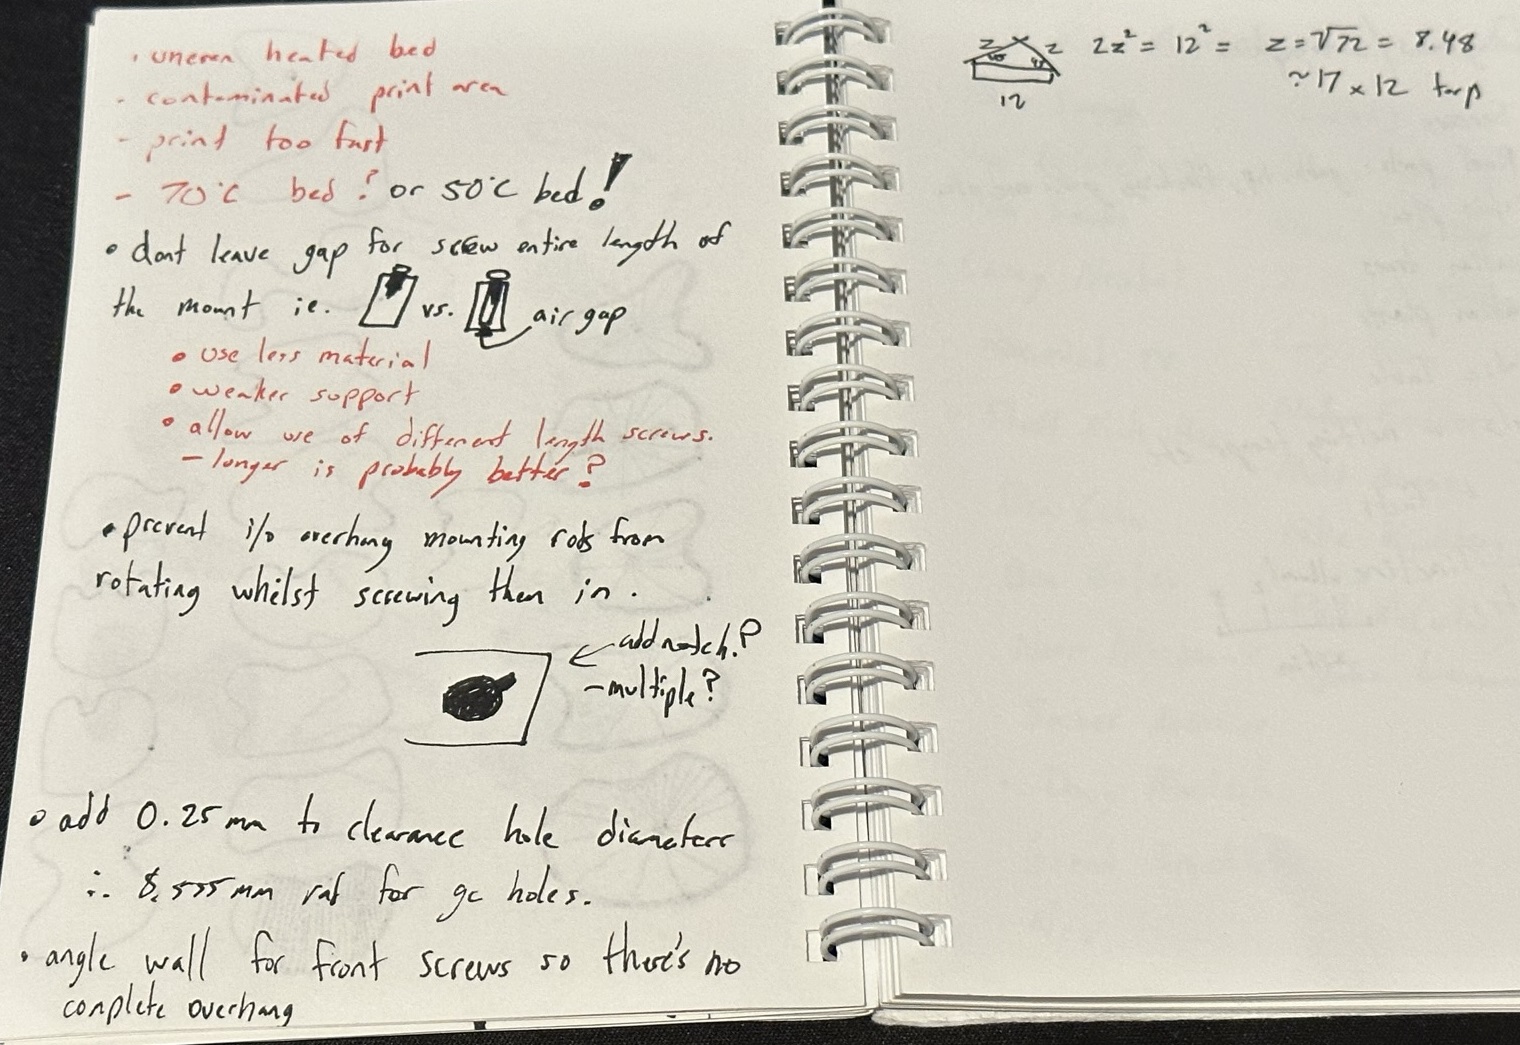 · uneven heated bed
- contaminated print area
- print too fast
- 70°C bed? or 50°C bed!
• dont leave gap for screw entire length of
the mount ie. vs. air gap
• use less material
• weaker support
• allow use of different length screws.
- longer is probably better?
• prevent i/o overhang mounting rods from
rotating whilst screwing them in.
add notch?
- multiple?
• add 0.25mm to clearance hole diameters
∴ 8.555mm for gc holes.
• angle wall for front screws so there's no
complete overhang
z z 2z² = 12² = z = √72 = 8.48
45 45
12
~17 x 12 tarp